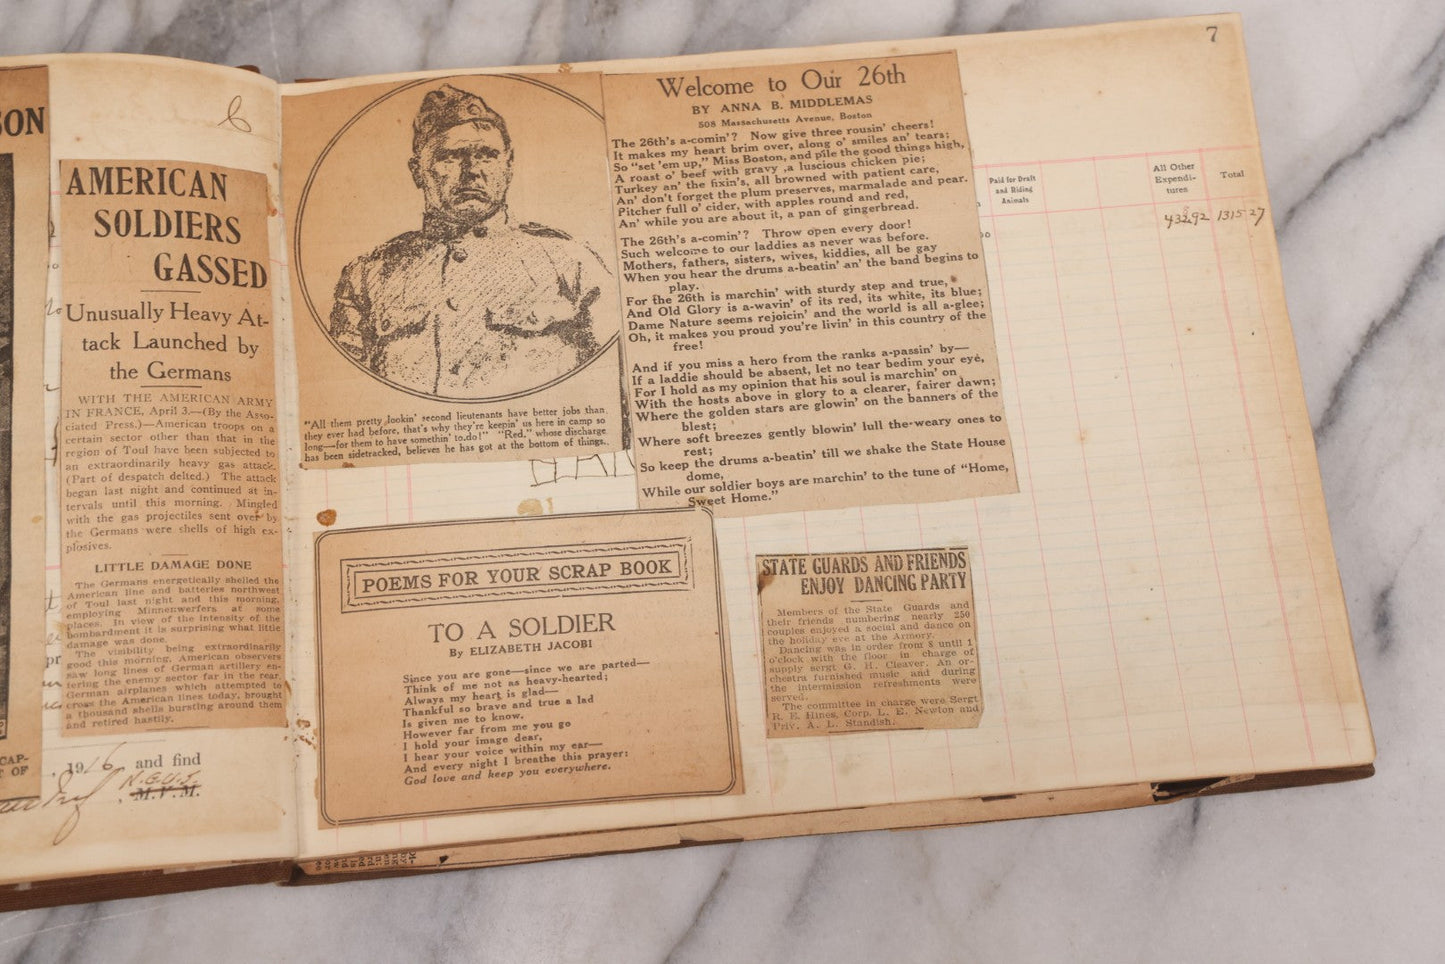 SON
6
AMERICAN
SOLDIERS
GASSED
Unusually Heavy At-
tack Launched by
the Germans
WITH THE AMERICAN ARMY
IN FRANCE, April 3.—(By the Asso-
ciated Press.)—American troops on a
certain sector other than that in the
region of Toul have been subjected to
an extraordinarily heavy gas attack.
(Part of despatch delted.) The attack
began last night and continued at in-
tervals until this morning. Mingled
with the gas projectiles sent over by
the Germans were shells of high ex-
plosives.
LITTLE DAMAGE DONE
The Germans energetically shelled the
American line and batteries northwest
of Toul last night and this morning,
employing Minnenwerfers at some
places. In view of the intensity of the
bombardment it is surprising what little
damage was done.
The visibility being extraordinarily
good this morning, American observers
saw long lines of German artillery en-
tering the enemy sector far in the rear.
German airplanes which attempted to
cross the American lines today, brought
a thousand shells bursting around them
and retired hastily.
CAP-
T OF
, 1916 and find
N.G.U.S.
M.V.M.
"All them pretty lookin' second lieutenants have better jobs than
they ever had before, that's why they're keepin' us here in camp so
long—for them to have somethin' to do!" "Red," whose discharge
has been sidetracked, believes he has got at the bottom of things.
Welcome to Our 26th
BY ANNA B. MIDDLEMAS
508 Massachusetts Avenue, Boston
The 26th's a-comin'? Now give three rousin' cheers!
It makes my heart brim over, along o' smiles an' tears;
So "set 'em up," Miss Boston, and pile the good things high,
A roast o' beef with gravy, a luscious chicken pie;
Turkey an' the fixin's, all browned with patient care,
An' don't forget the plum preserves, marmalade and pear.
Pitcher full o' cider, with apples round and red,
An' while you are about it, a pan of gingerbread.
The 26th's a-comin'? Throw open every door!
Such welcome to our laddies as never was before.
Mothers, fathers, sisters, wives, kiddies, all be gay
When you hear the drums a-beatin' an' the band begins to
play.
For the 26th is marchin' with sturdy step and true,
And Old Glory is a-wavin' of its red, its white, its blue;
Dame Nature seems rejoicin' and the world is all a-glee;
Oh, it makes you proud you're livin' in this country of the
free!
And if you miss a hero from the ranks a-passin' by—
If a laddie should be absent, let no tear bedim your eye,
For I hold as my opinion that his soul is marchin' on
With the hosts above in glory to a clearer, fairer dawn;
Where the golden stars are glowin' on the banners of the
blest;
Where soft breezes gently blowin' lull the weary ones to
rest;
So keep the drums a-beatin' till we shake the State House
dome,
While our soldier boys are marchin' to the tune of "Home,
Sweet Home."
POEMS FOR YOUR SCRAP BOOK
TO A SOLDIER
By ELIZABETH JACOBI
Since you are gone—since we are parted—
Think of me not as heavy-hearted;
Always my heart is glad—
Thankful so brave and true a lad
Is given me to know.
However far from me you go
I hold your image dear,
I hear your voice within my ear—
And every night I breathe this prayer:
God love and keep you everywhere.
7
Paid for Draft
and Riding
Animals
All Other
Expendi-
tures
Total
1315 27
STATE GUARDS AND FRIENDS
ENJOY DANCING PARTY
Members of the State Guards and
their friends numbering nearly 250
couples enjoyed a social and dance on
the holiday eve at the Armory.
Dancing was in order from 8 until 1
o'clock with the floor in charge of
supply sergt G. H. Cleaver. An or-
chestra furnished music and during
the intermission refreshments were
served.
The committee in charge were Sergt
R. E. Hines, Corp. L. E. Newton and
Priv. A. L. Standish.